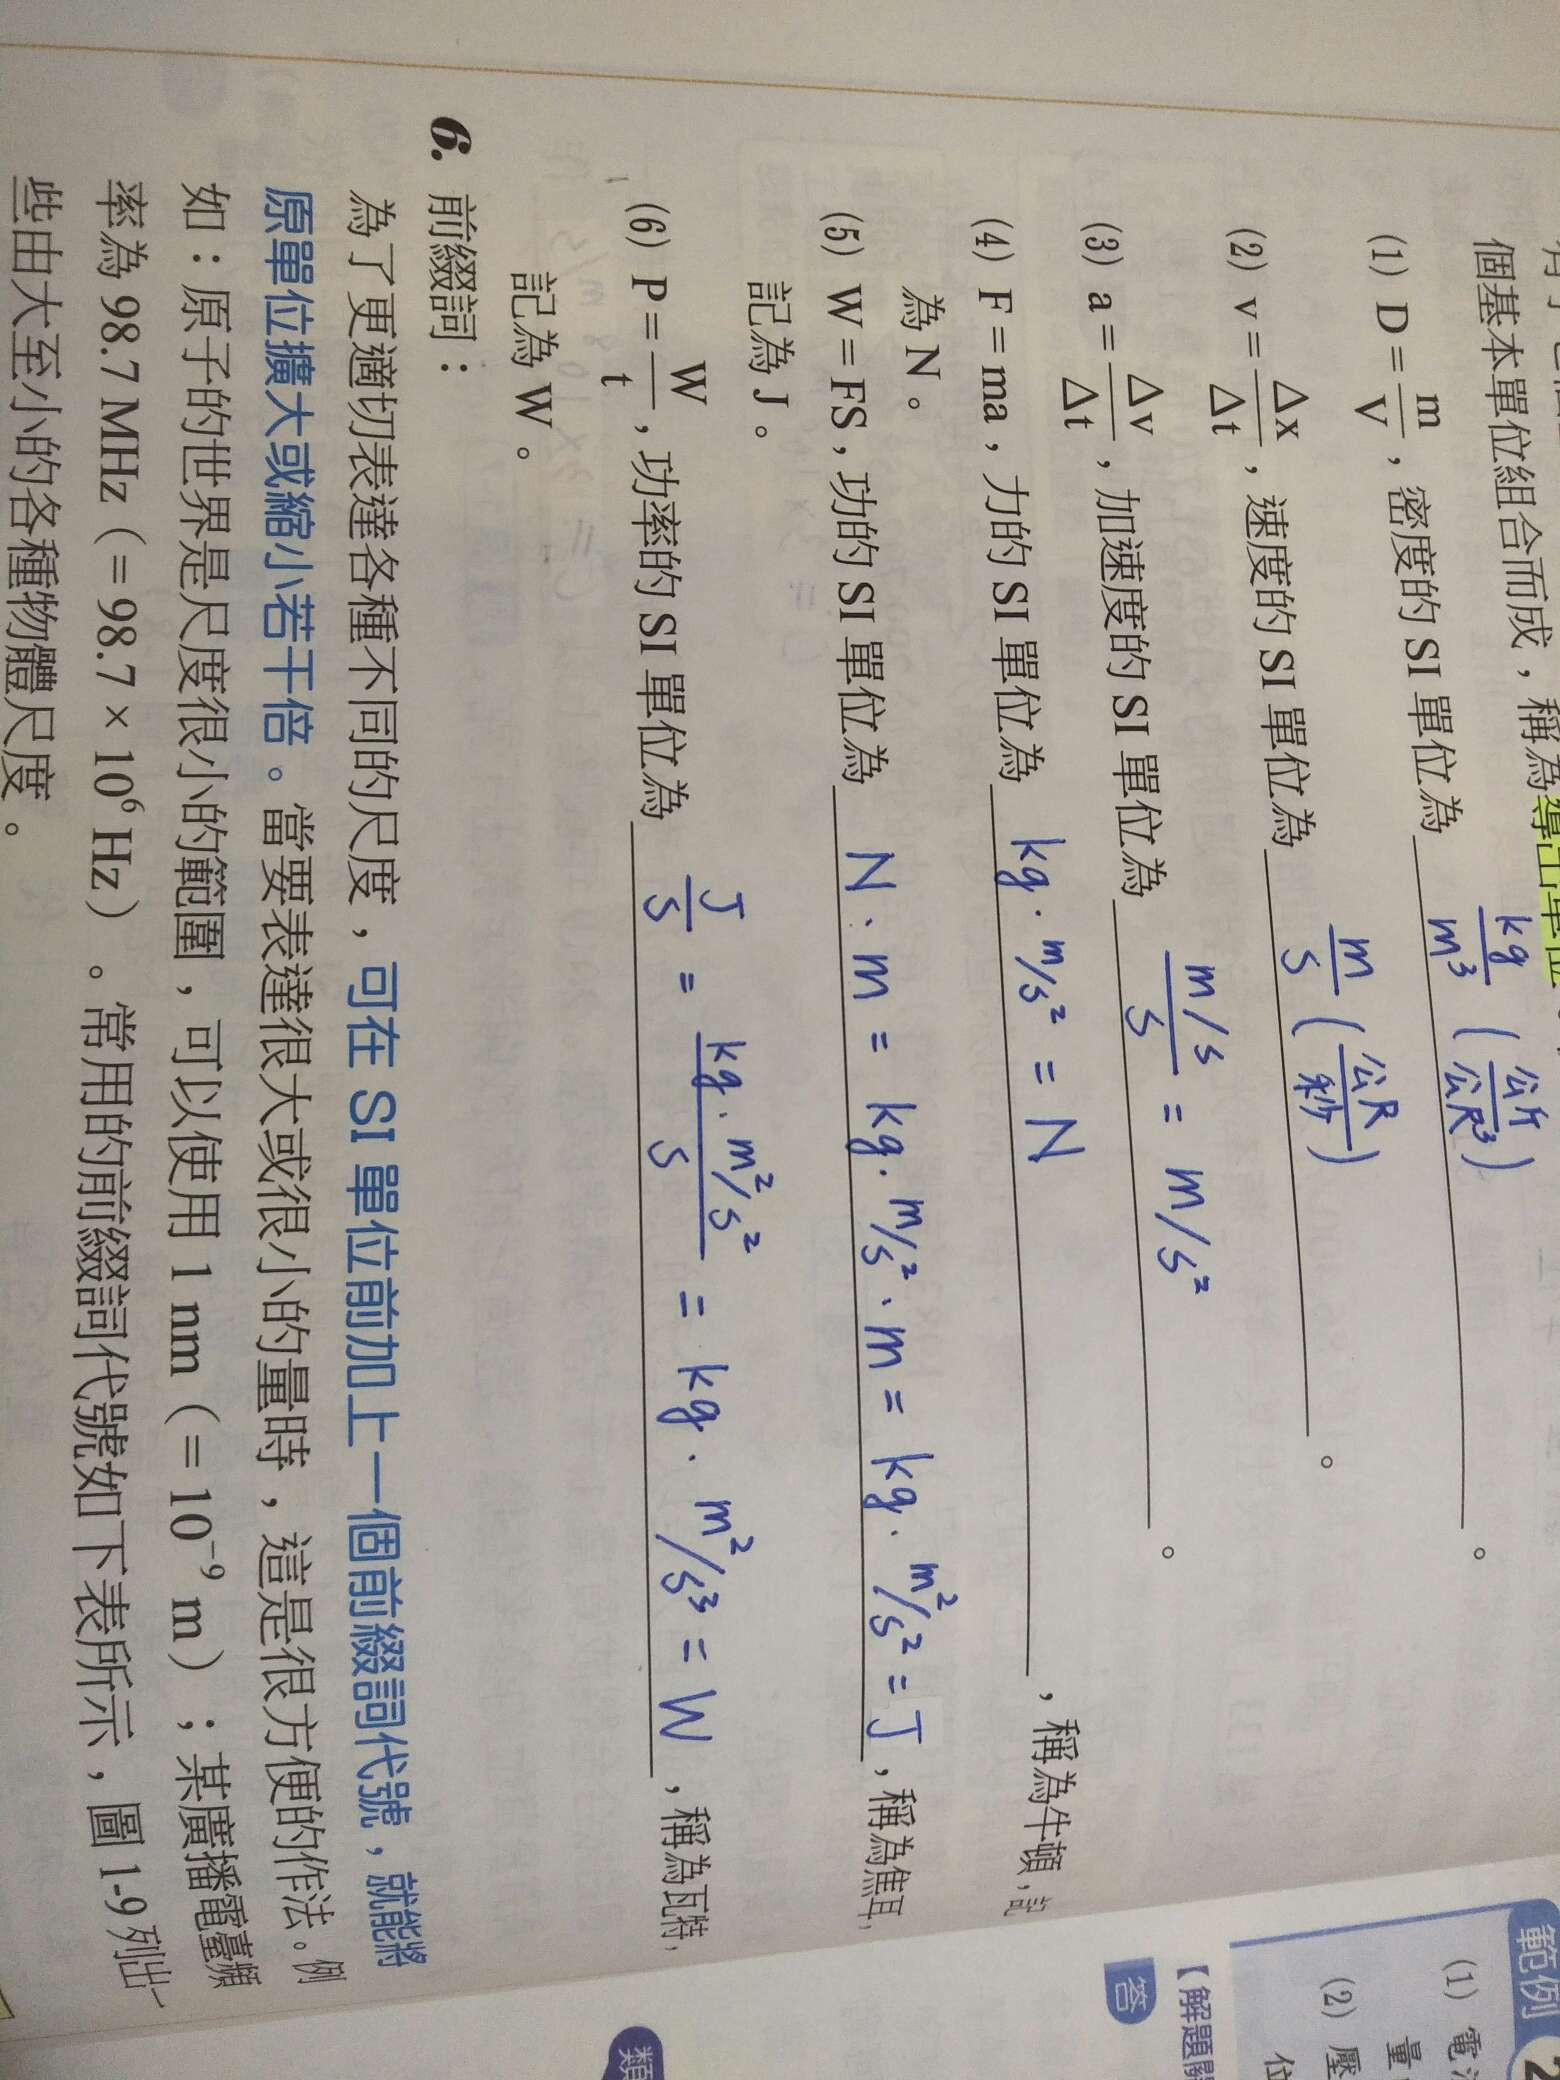 個基本單位組合而成，稱為導出單位
(1) D = m/V，密度的 SI 單位為 kg/m³ (公斤/公尺³)。
(2) v = Δx/Δt，速度的 SI 單位為 m/s (公尺/秒)。
(3) a = Δv/Δt，加速度的 SI 單位為 m/s / s = m/s²。
(4) F = ma，力的 SI 單位為 kg·m/s² = N，稱為牛頓，記
為 N。
(5) W = FS，功的 SI 單位為 N·m = kg·m/s²·m = kg·m²/s² = J，稱為焦耳，
記為 J。
(6) P = W/t，功率的 SI 單位為 J/s = kg·m²/s² / s = kg·m²/s³ = W，稱為瓦特，
記為 W。
6. 前綴詞：
為了更適切表達各種不同的尺度，可在 SI 單位前加上一個前綴詞代號，就能將
原單位擴大或縮小若干倍。當要表達很大或很小的量時，這是很方便的作法。例
如：原子的世界是尺度很小的範圍，可以使用 1 nm（= 10⁻⁹ m）；某廣播電臺頻
率為 98.7 MHz（= 98.7 × 10⁶ Hz）。常用的前綴詞代號如下表所示，圖 1-9 列出一
些由大至小的各種物體尺度。
範例 2
(1) 電
量
(2) 壓
位
【解題關
答
類